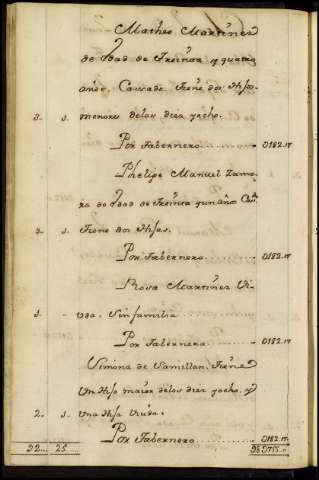 Matheo Martinez
de Edad de Treinta y quatro
años. Casado. Tiene dos Hijos
3. 2. menores delos diez y ocho.
Por Tabernero 0182.17
Phelipe Manuel Zamo-
ra de Edad de Treinta y un años Casdo.
3. 2. Tiene dos Hijas.
Por Tabernero 0182.17
Rosa Martinez Vi-
1. - uda. Sin familia
Por Tabernera 0182.17
Simona de Samillan. Tiene
Un Hijo maior delos diez y ocho. y
2. 1. Una Hija Viuda.
Por Tabernero 0182.17
32 25